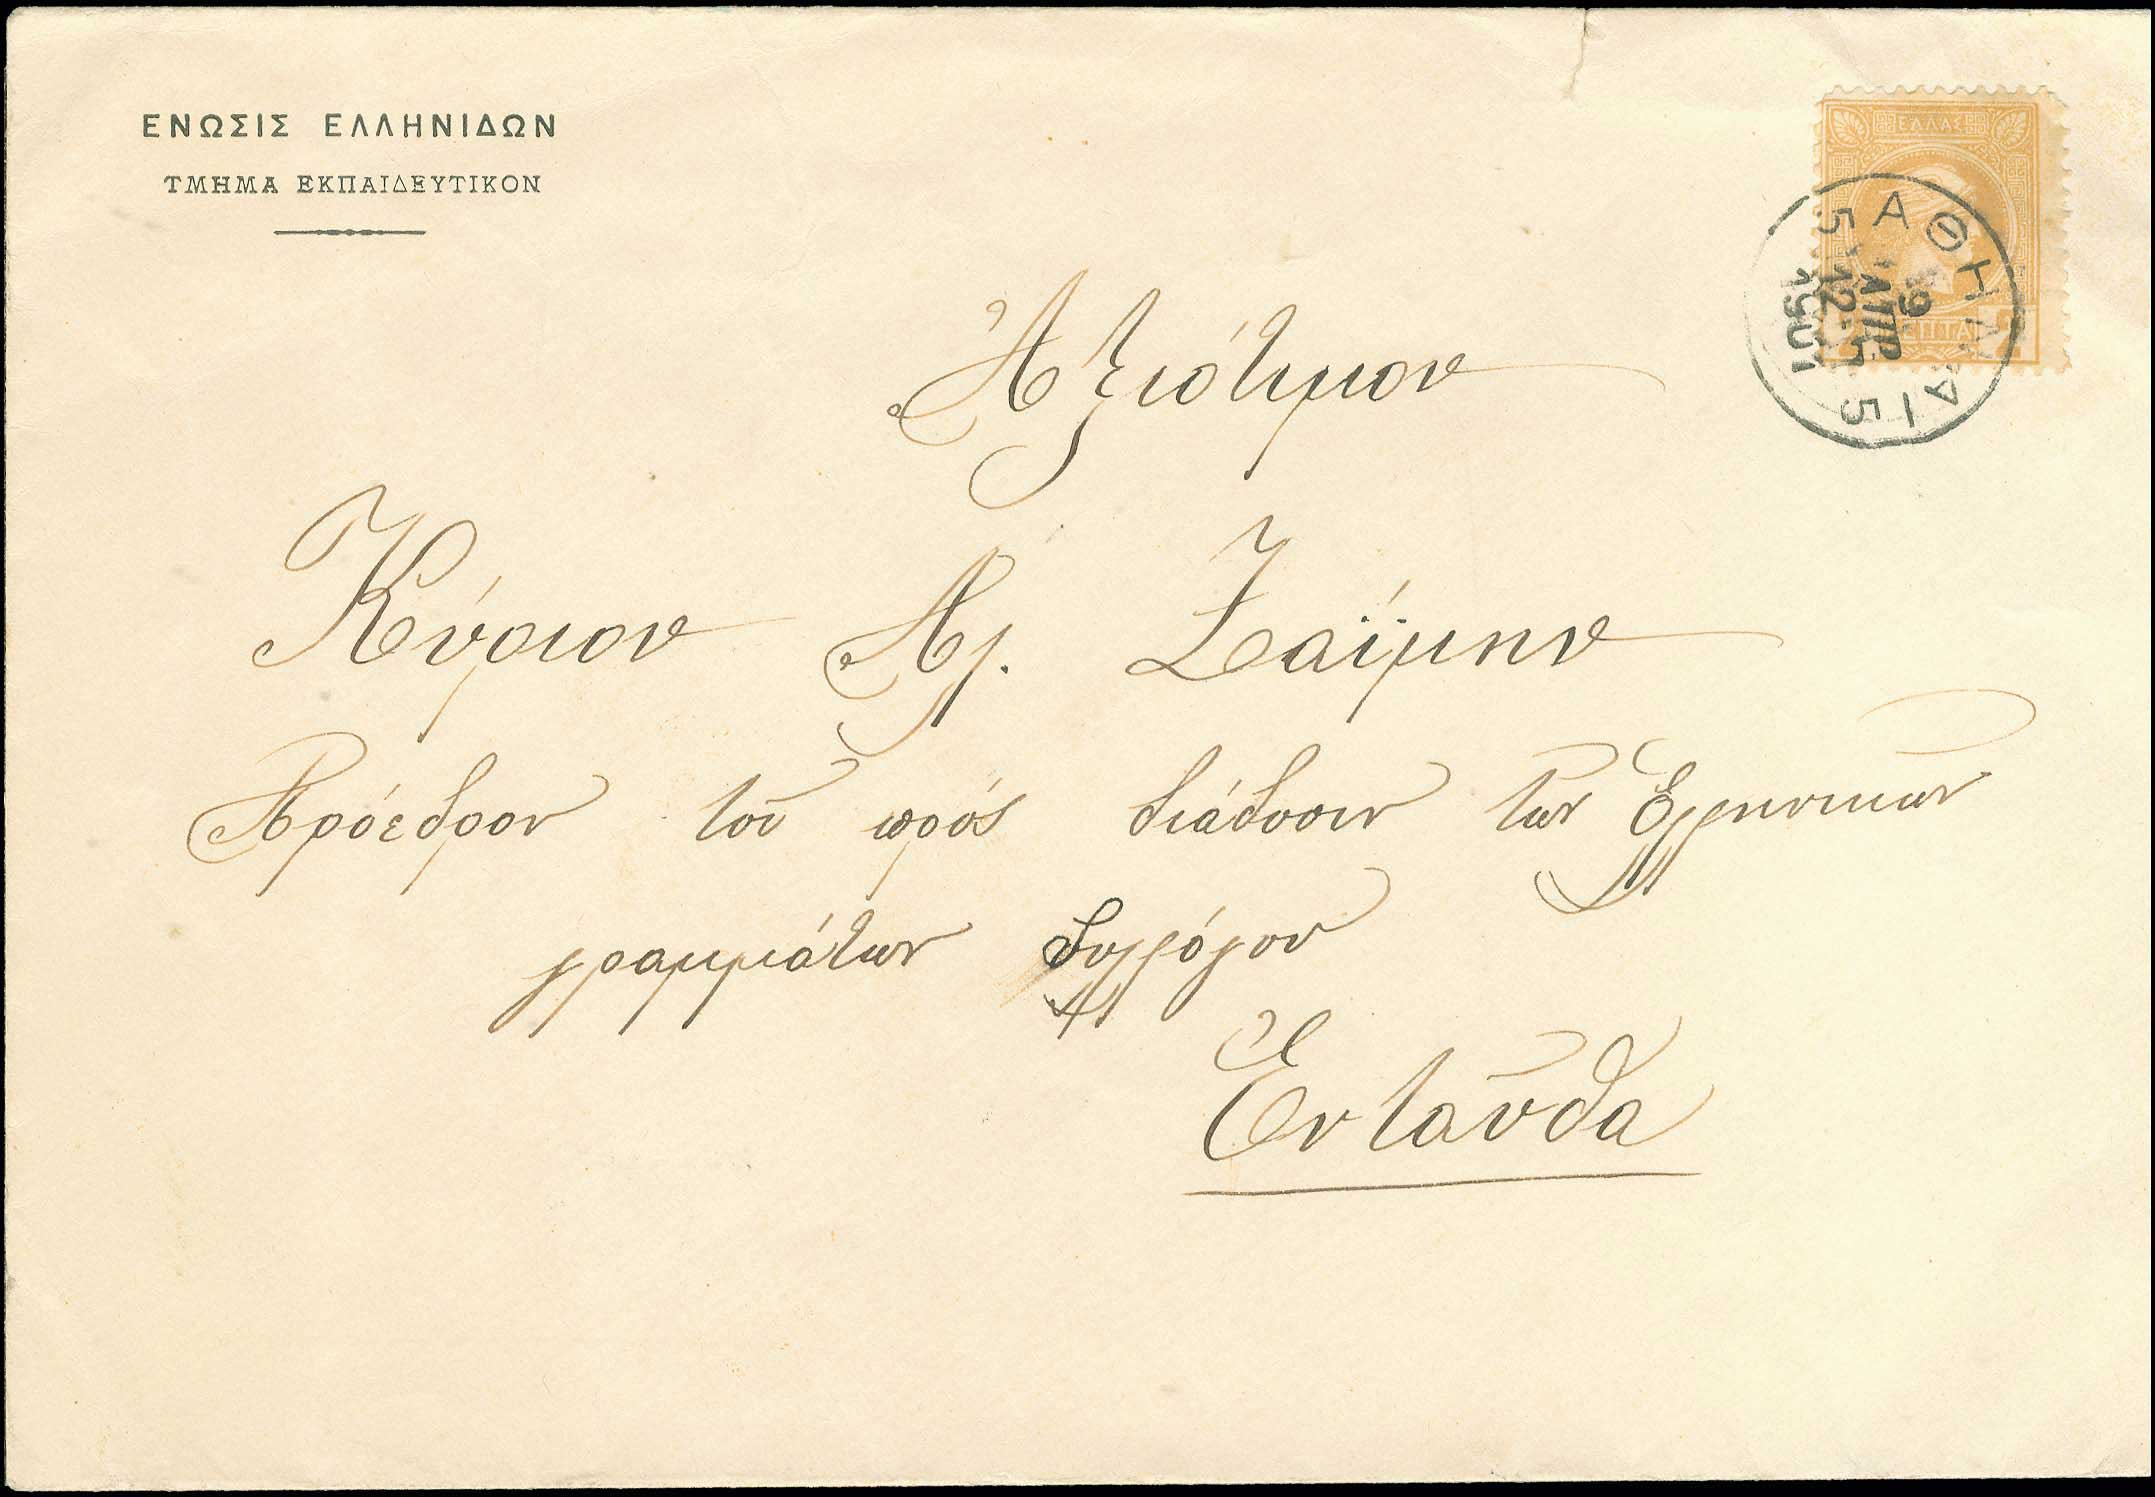 ΕΝΩΣΙΣ ΕΛΛΗΝΙΔΩΝ
ΤΜΗΜΑ ΕΚΠΑΙΔΕΥΤΙΚΟΝ
ΕΛΛΑΣ
2 ΛΕΠΤΑ 2
ΑΘΗΝΑΙ 5
5
19 ΑΠΡ
1901
Ἀξιότιμον
Κύριον Ἀλ. Ζαΐμην
Πρόεδρον τοῦ πρός διάδοσιν τῶν Ἑλληνικῶν
γραμμάτων Συλλόγου
Ἐνταῦθα